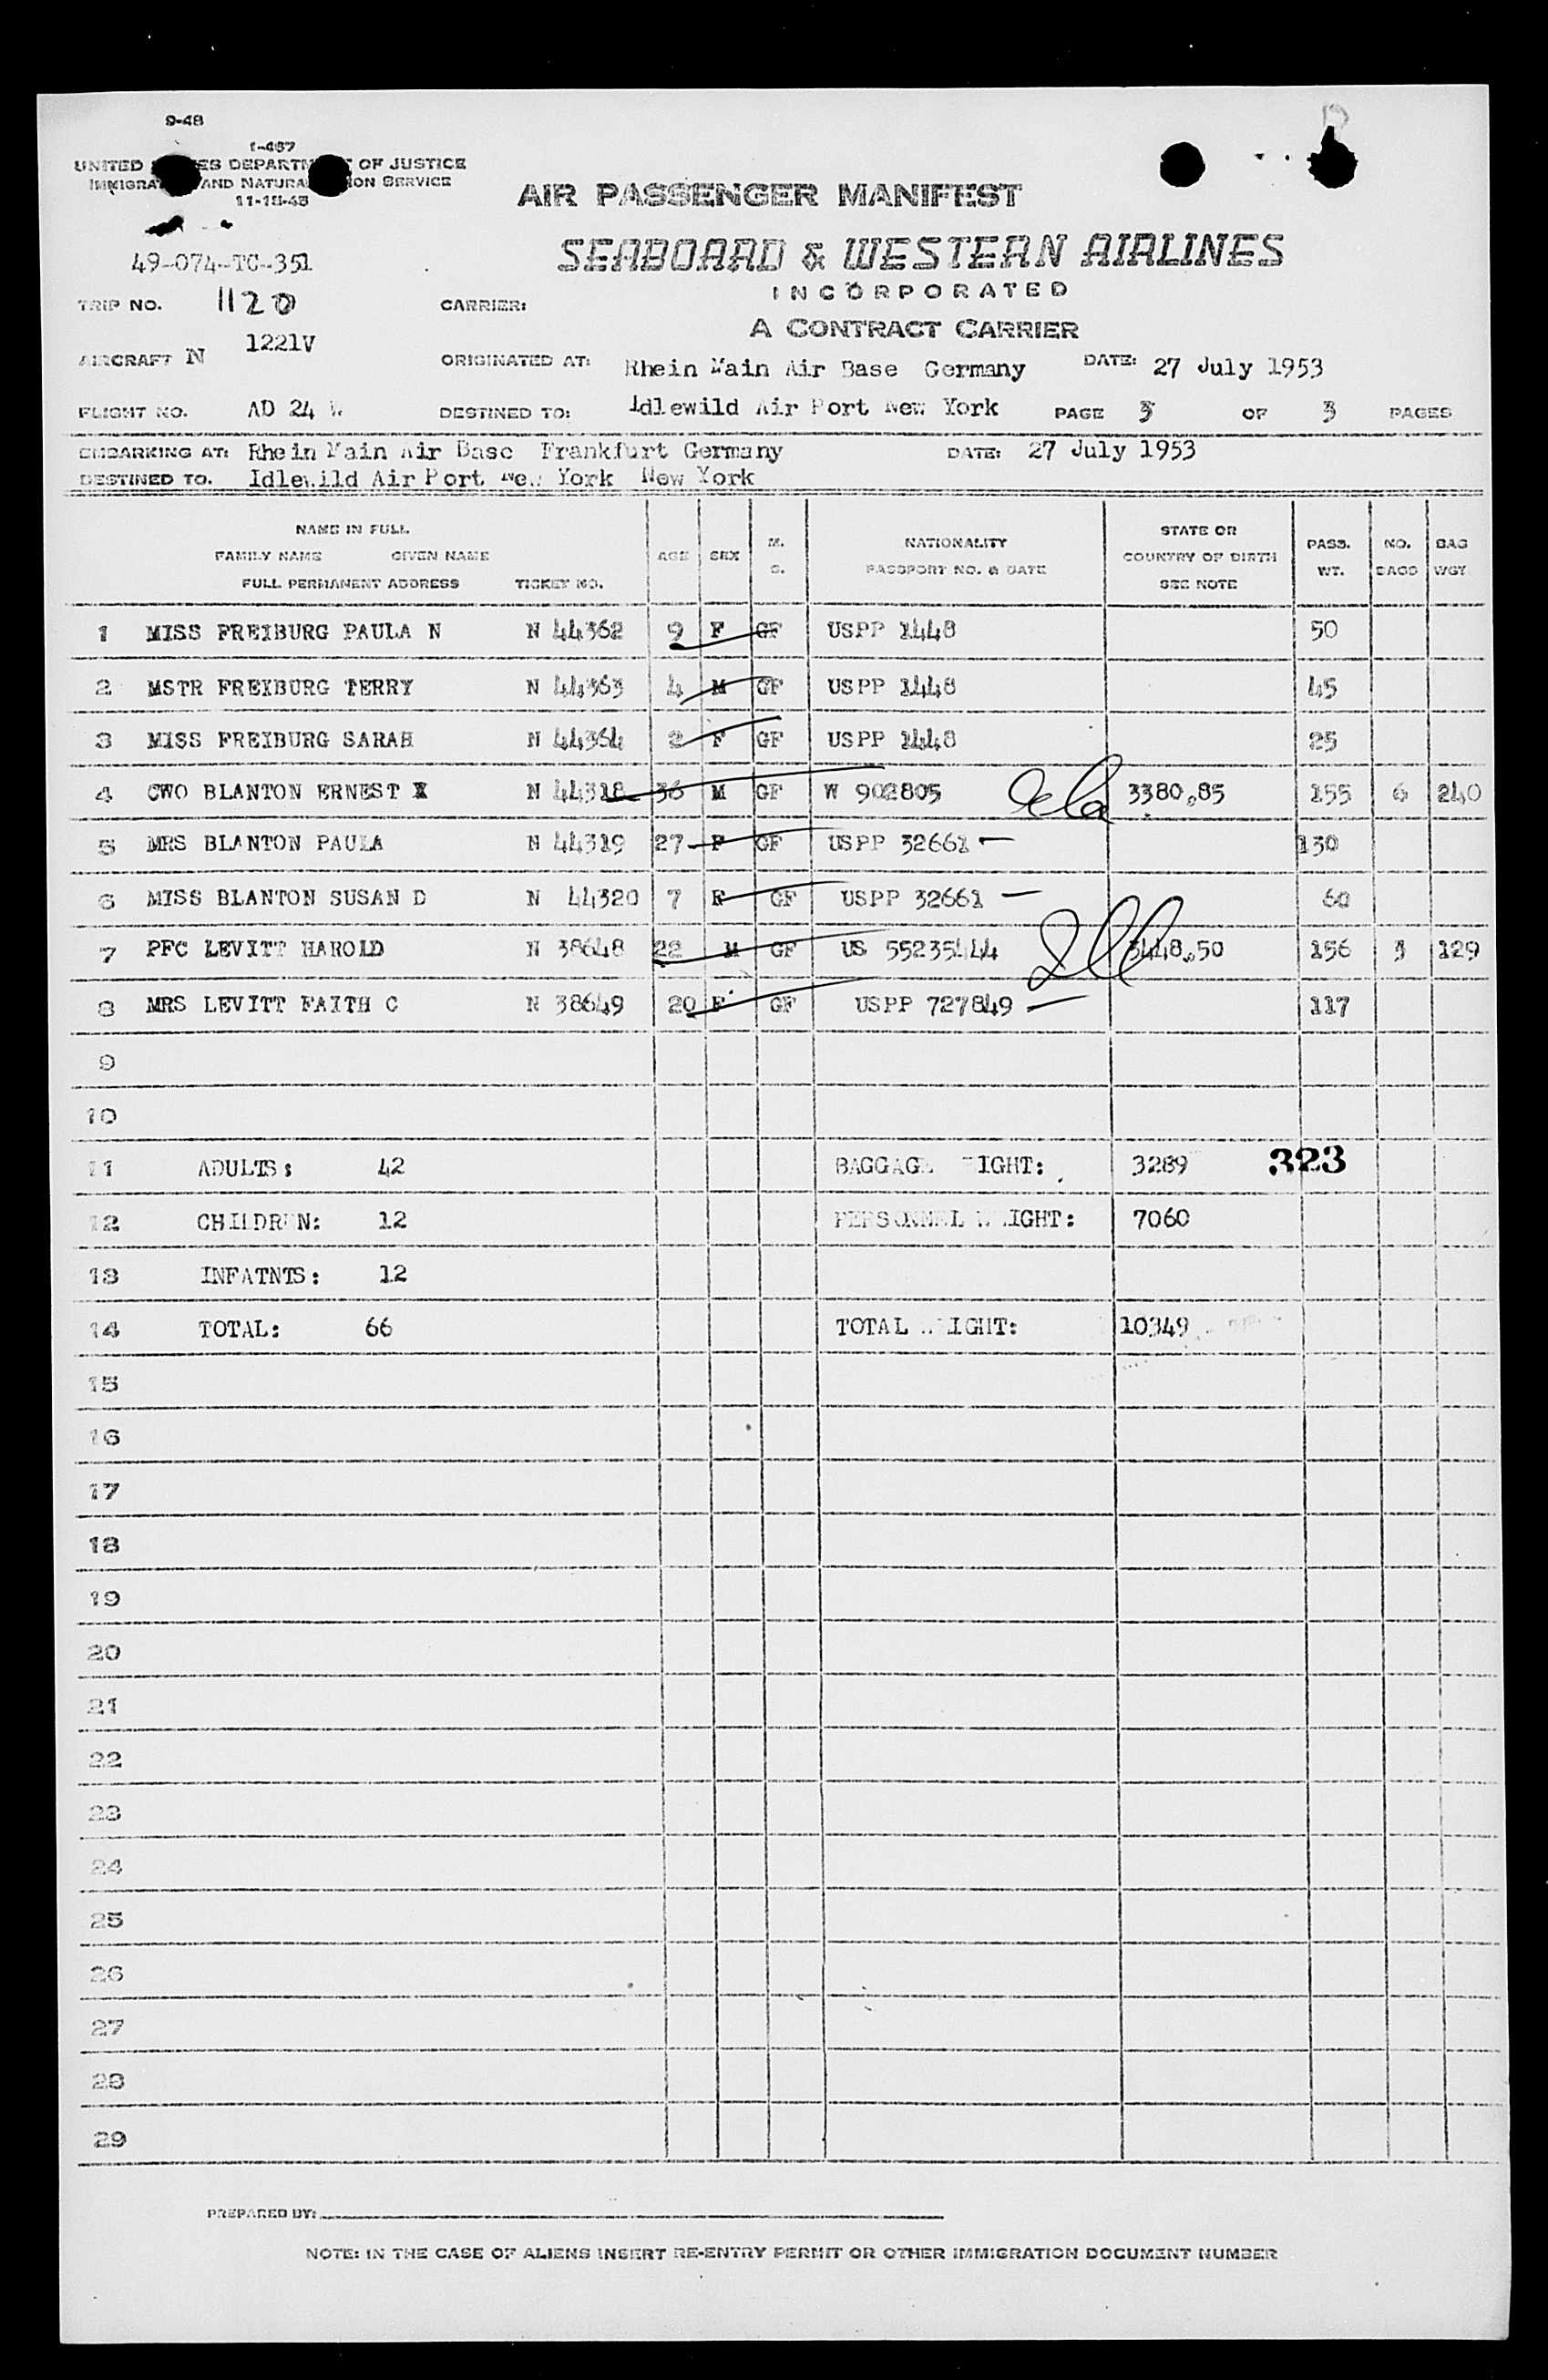 9-48
I-467
UNITED DEPARTM OF JUSTICE
IMMIGRA AND NATURA ION SERVICE
11-18-48
AIR PASSENGER MANIFEST
SEABOARD & WESTERN AIRLINES
INCORPORATED
A CONTRACT CARRIER
49-074-TC-351
TRIP NO. 1120 CARRIER:
AIRCRAFT N 1221V ORIGINATED AT: Rhein Main Air Base Germany DATE: 27 July 1953
FLIGHT NO. AD 24 W DESTINED TO: Idlewild Air Port New York PAGE 3 OF 3 PAGES
EMBARKING AT: Rhein Main Air Base Frankfurt Germany DATE: 27 July 1953
DESTINED TO. Idlewild Air Port New York New York
NAME IN FULL
FAMILY NAME GIVEN NAME
FULL PERMANENT ADDRESS TICKET NO. AGE SEX M. S. NATIONALITY PASSPORT NO. & DATE STATE OR COUNTRY OF BIRTH SEE NOTE PASS. WT. NO. BAGS BAG WGT
1 MISS FREIBURG PAULA N N 44362 9 F GF USPP 1448 50
2 MSTR FREIBURG TERRY N 44363 4 M GF USPP 1448 45
3 MISS FREIBURG SARAH N 44364 2 F GF USPP 1448 25
4 CWO BLANTON ERNEST N 44318 36 M GF W 902805 3380.85 155 6 240
5 MRS BLANTON PAULA N 44319 27 F GF USPP 32661 130
6 MISS BLANTON SUSAN D N 44320 7 F GF USPP 32661 60
7 PFC LEVITT HAROLD N 38648 22 M GF US 55235444 3448.50 156 3 129
8 MRS LEVITT FAITH C N 38649 20 F GF USPP 727849 117
9
10
11 ADULTS: 42 BAGGAGE IGHT: 3289 323
12 CHILDREN: 12 PERSONNEL W IGHT: 7060
13 INFATNTS: 12
14 TOTAL: 66 TOTAL IGHT: 10349
15
16
17
18
19
20
21
22
23
24
25
26
27
28
29
PREPARED BY:
NOTE: IN THE CASE OF ALIENS INSERT RE-ENTRY PERMIT OR OTHER IMMIGRATION DOCUMENT NUMBER